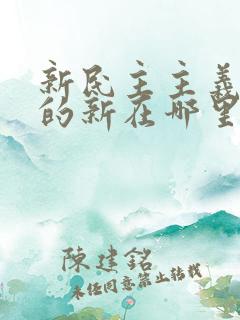 新民主主義
的新在哪里
陳建銘
未经同意禁止转载